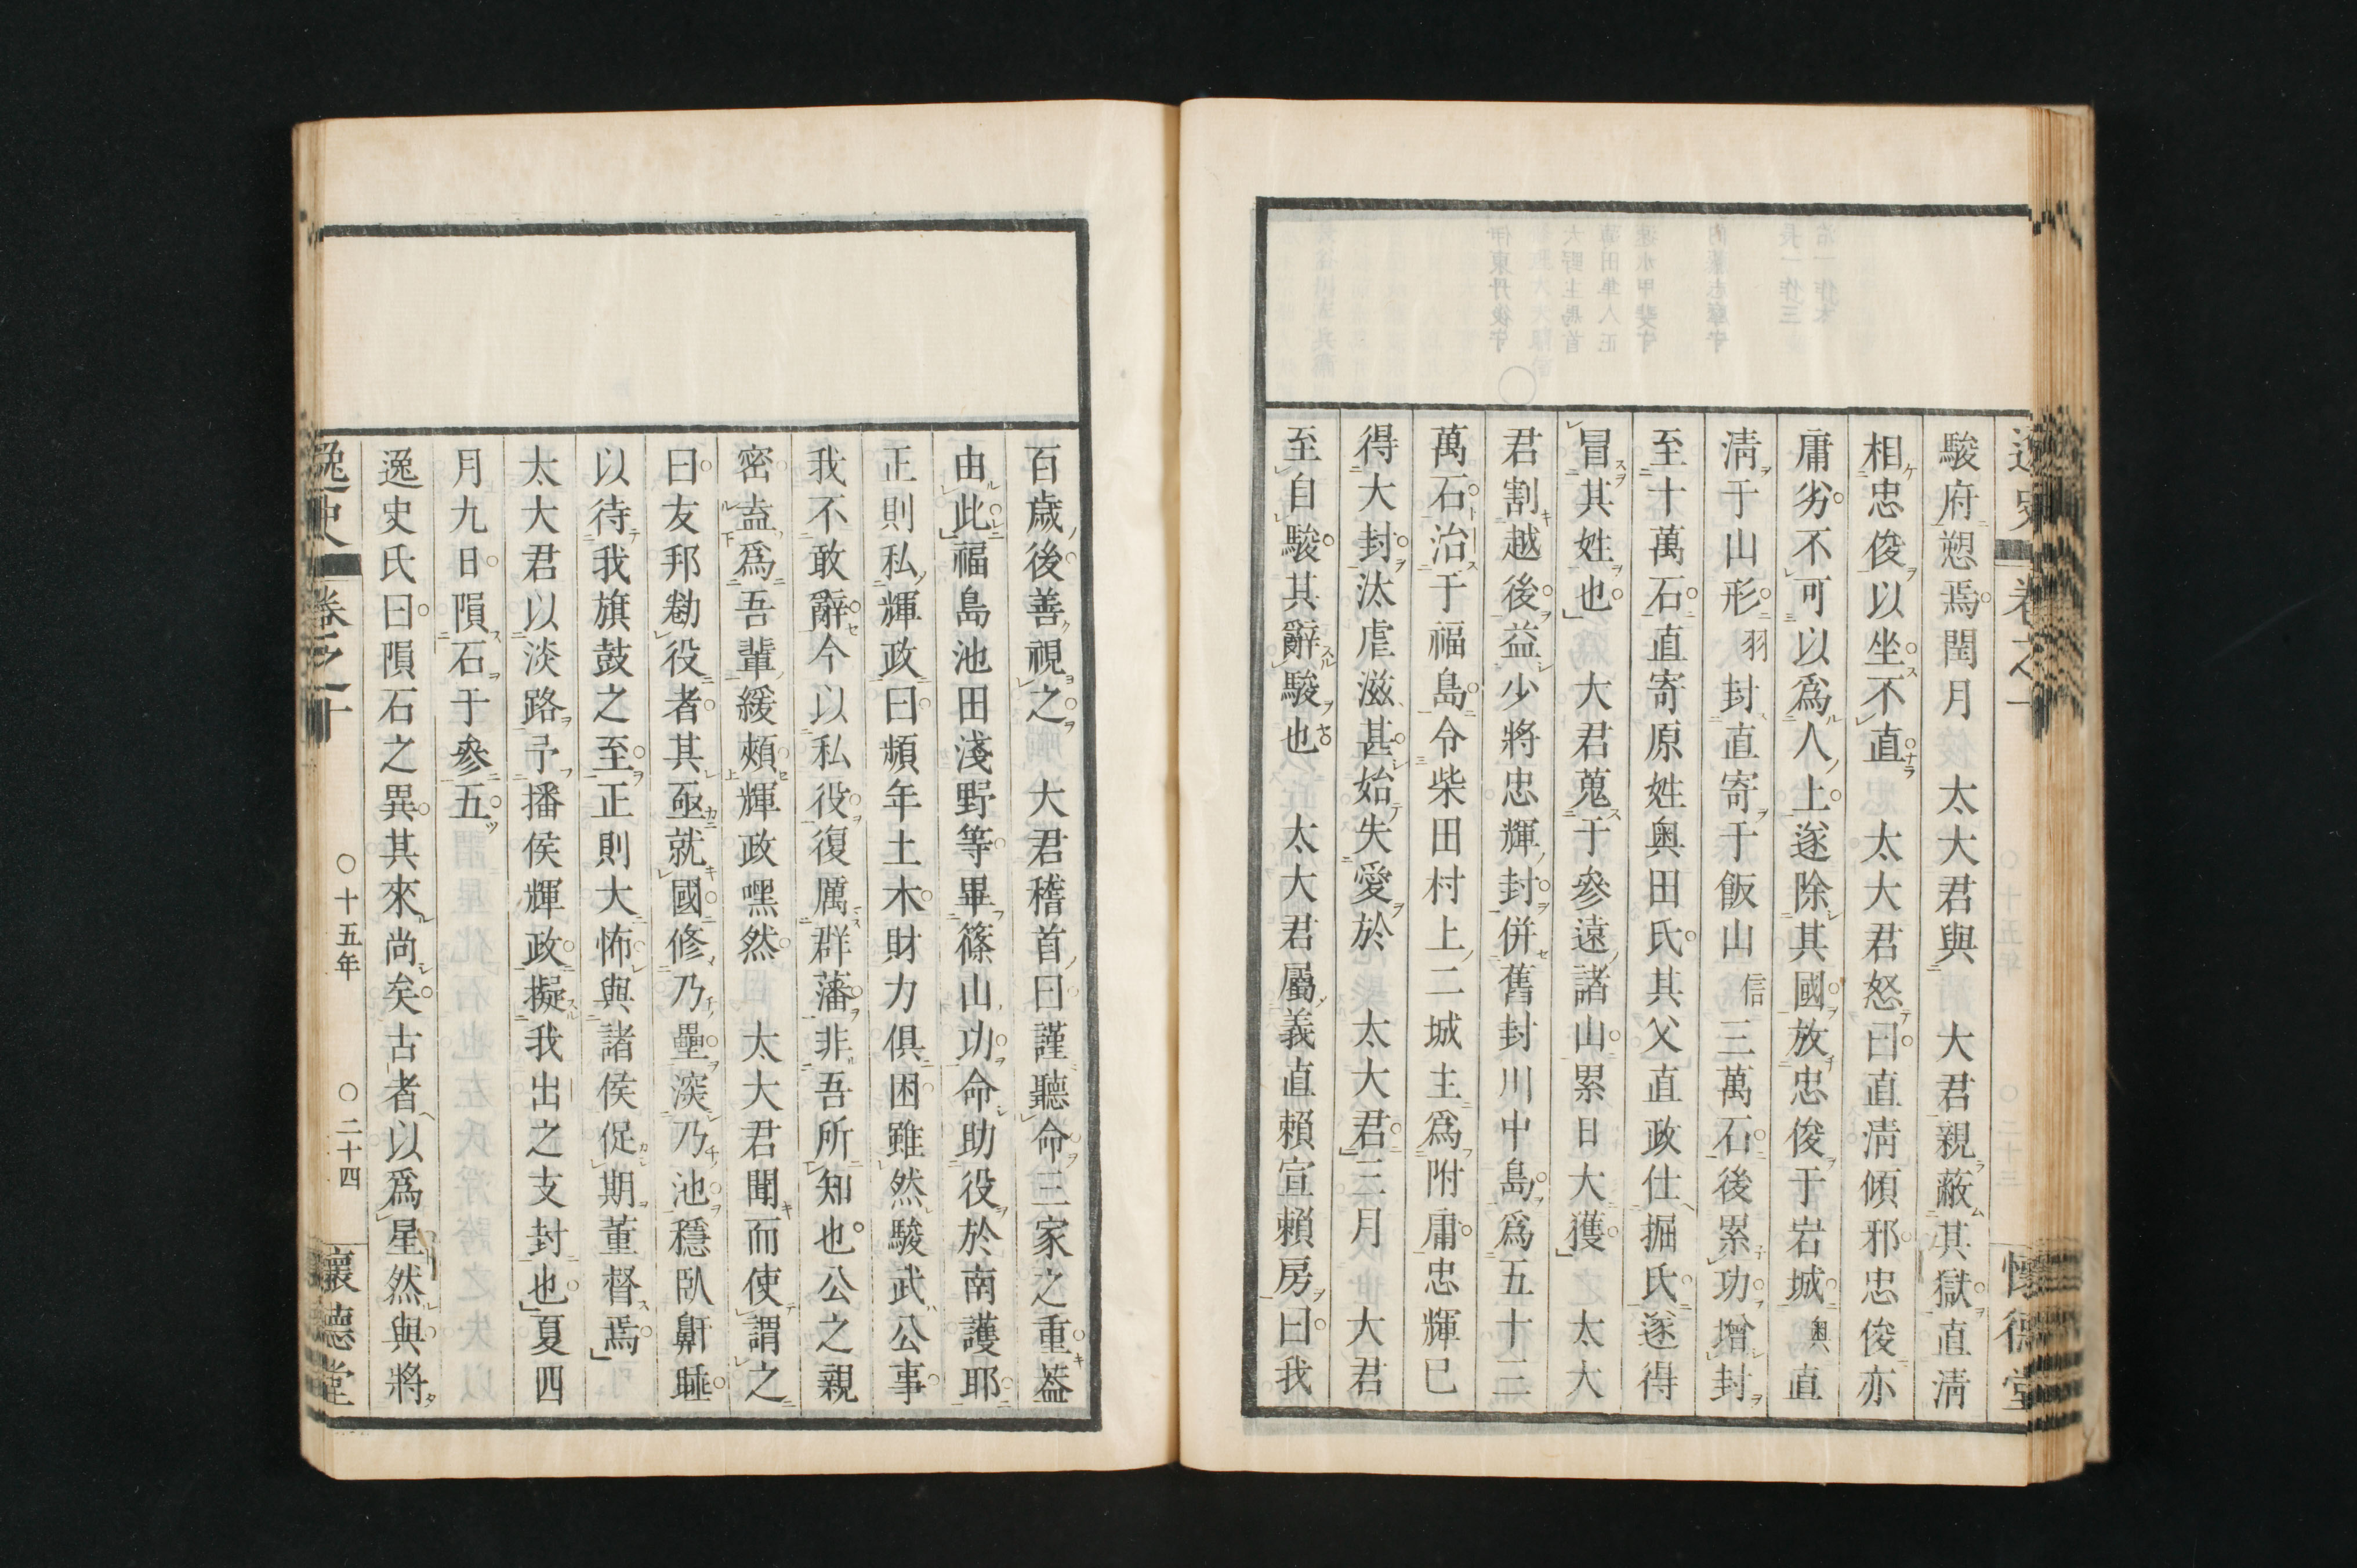 駿府愬焉閏月　太大君與　大君親蔽其獄直淸
相忠俊以坐不直　太大君怒曰直淸傾邪忠俊亦
庸劣不可以爲人上遂除其國放忠俊于岩城奥直
淸于山形羽封直寄于飯山信三萬石後累功增封
至十萬石直寄原姓奥田氏其父直政仕掘氏遂得
冒其姓也　大君蒐于參遠諸山累日大獲　太大
君割越後益少將忠輝封併舊封川中島爲五十二
萬石治于福島令柴田村上二城主爲附庸忠輝已
得大封汰虐滋甚始失愛於　太大君三月　大君
至自駿其辭駿也　太大君屬義直賴宣賴房曰我
百歲後善視之　大君稽首曰謹聽命三家之重葢
由此福島池田淺野等畢篠山功命助役於南護耶
正則私輝政曰頻年土木財力俱困雖然駿武公事
我不敢辭今以私役復厲群藩非吾所知也公之親
密盍爲吾輩緩頰輝政嘿然　太大君聞而使謂之
曰友邦勌役者其亟就國修乃壘深乃池穩臥鼾睡
以待我旗鼓之至正則大怖與諸侯促期董督焉
太大君以淡路予播侯輝政擬我出之支封也夏四
月九日隕石于參五
逸史氏曰隕石之異其來尚矣古者以爲星然與將
逸史　卷之十　○十五年　○二十四　懷德堂